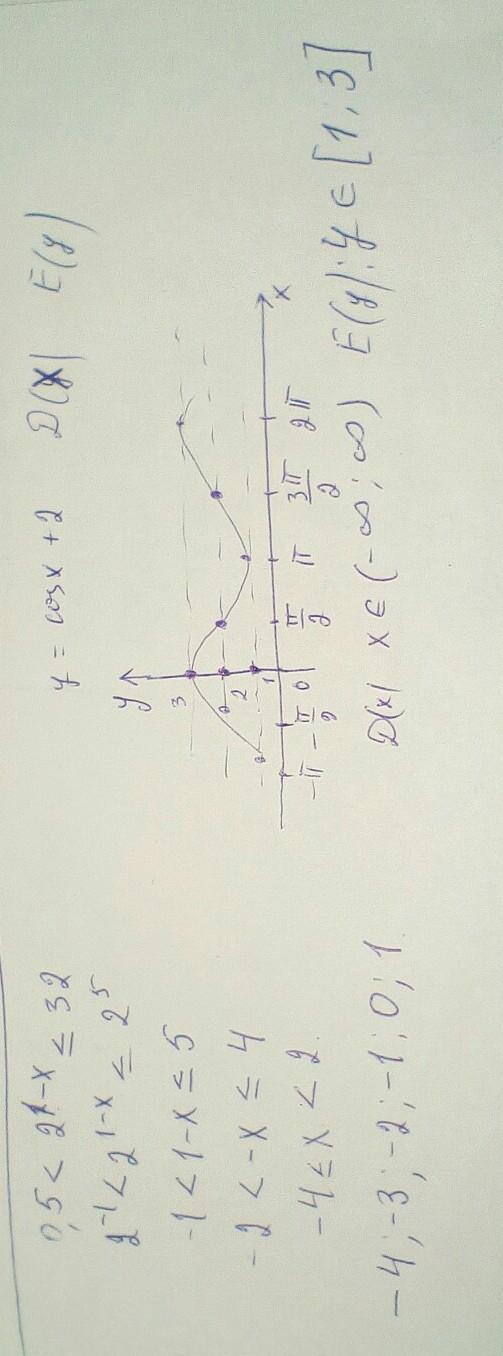 0,5 < 2^1-x ≤ 32
2^-1 < 2^1-x ≤ 2^5
-1 < 1-x ≤ 5
-2 < -x ≤ 4
-4 ≤ x < 2
-4; -3; -2; -1; 0; 1
y = cosx + 2 D(x) E(y)
y
3
2
1
-π -π/2 0 π/2 π 3π/2 2π x
D(x) x ∈ (-∞; ∞) E(y): y ∈ [1; 3]